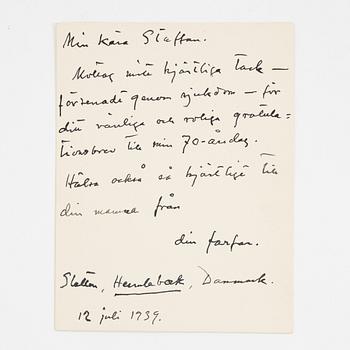 Min kära Staffan.
Mottag mitt hjärtliga tack —
försenade genom sjukdom — för
ditt vänliga och roliga gratula-
tionsbrev till min 70-årsdag.
Hälsa också så hjärtligt till
din mamma från
din farfar.
Sletten, Humlebæk, Danmark.
12 juli 1939.